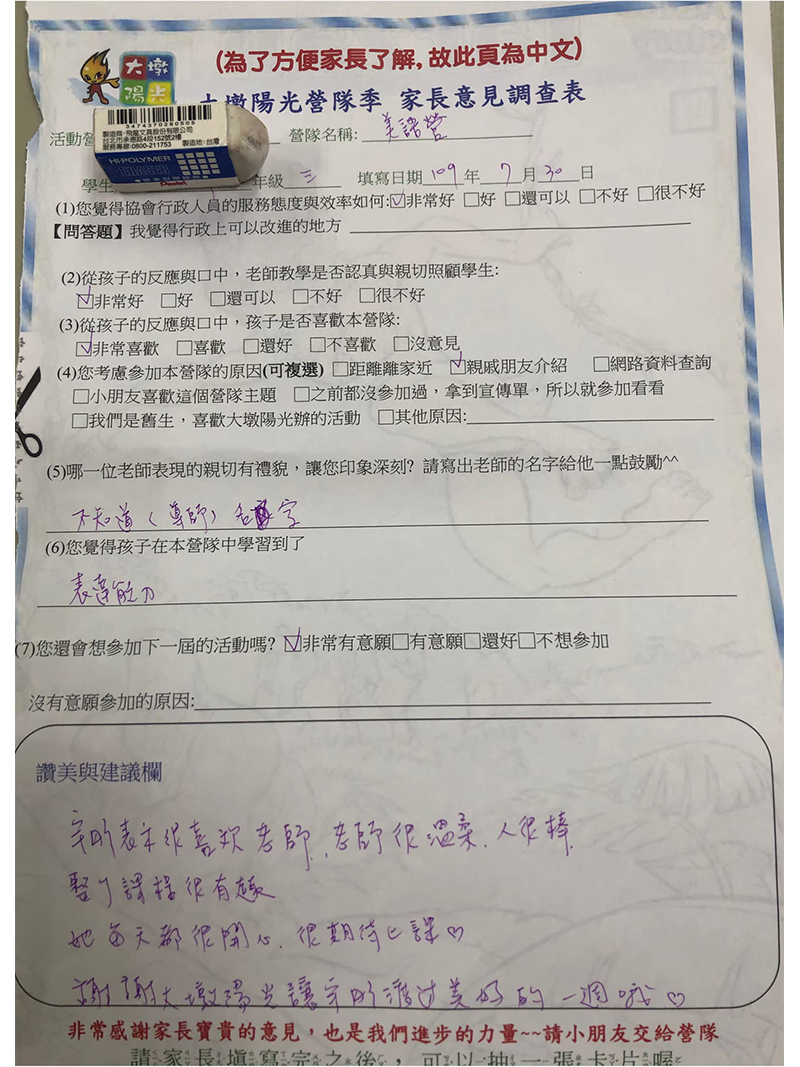 (為了方便家長了解, 故此頁為中文)
大墩
陽光
大墩陽光營隊季 家長意見調查表
3474370260505
製造商:飛龍文具股份有限公司
台北市承德路4段152號2樓
服務專線:0800-211753 製造地:台灣
HI-POLYMER
ERASER
Pentel
活動營 營隊名稱: 美語營
學生 年級 三 填寫日期 109 年 7 月 30 日
(1)您覺得協會行政人員的服務態度與效率如何:☑非常好 □好 □還可以 □不好 □很不好
【問答題】我覺得行政上可以改進的地方
(2)從孩子的反應與口中，老師教學是否認真與親切照顧學生:
☑非常好 □好 □還可以 □不好 □很不好
(3)從孩子的反應與口中，孩子是否喜歡本營隊:
☑非常喜歡 □喜歡 □還好 □不喜歡 □沒意見
(4)您考慮參加本營隊的原因(可複選) □距離離家近 ☑親戚朋友介紹 □網路資料查詢
□小朋友喜歡這個營隊主題 □之前都沒參加過，拿到宣傳單，所以就參加看看
□我們是舊生，喜歡大墩陽光辦的活動 □其他原因:
(5)哪一位老師表現的親切有禮貌，讓您印象深刻? 請寫出老師的名字給他一點鼓勵^^
不知道(導師)名字
(6)您覺得孩子在本營隊中學習到了
表達能力
(7)您還會想參加下一屆的活動嗎? ☑非常有意願□有意願□還好□不想參加
沒有意願參加的原因:
讚美與建議欄
表示很喜歡老師, 老師很溫柔, 人很棒,
整個課程很有趣
她每天都很開心, 很期待上課♡
謝謝大墩陽光讓 渡過美好的一週哦♡
非常感謝家長寶貴的意見，也是我們進步的力量~~請小朋友交給營隊
請家長填寫完之後，可以抽一張卡片喔